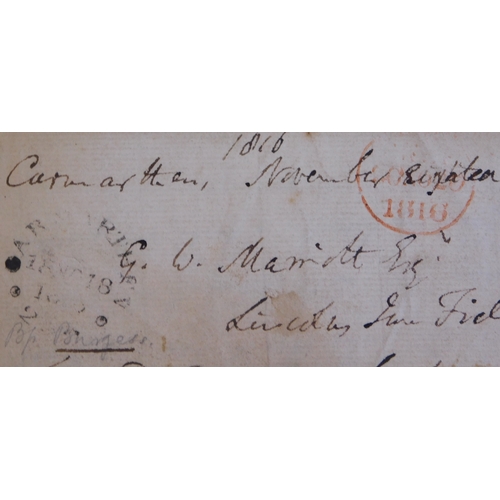 1816
Carmarthen, November Eighteen
1816
G. W. Marriott Esqr
Lincolns Inn Fiel
Bp. Burgess.